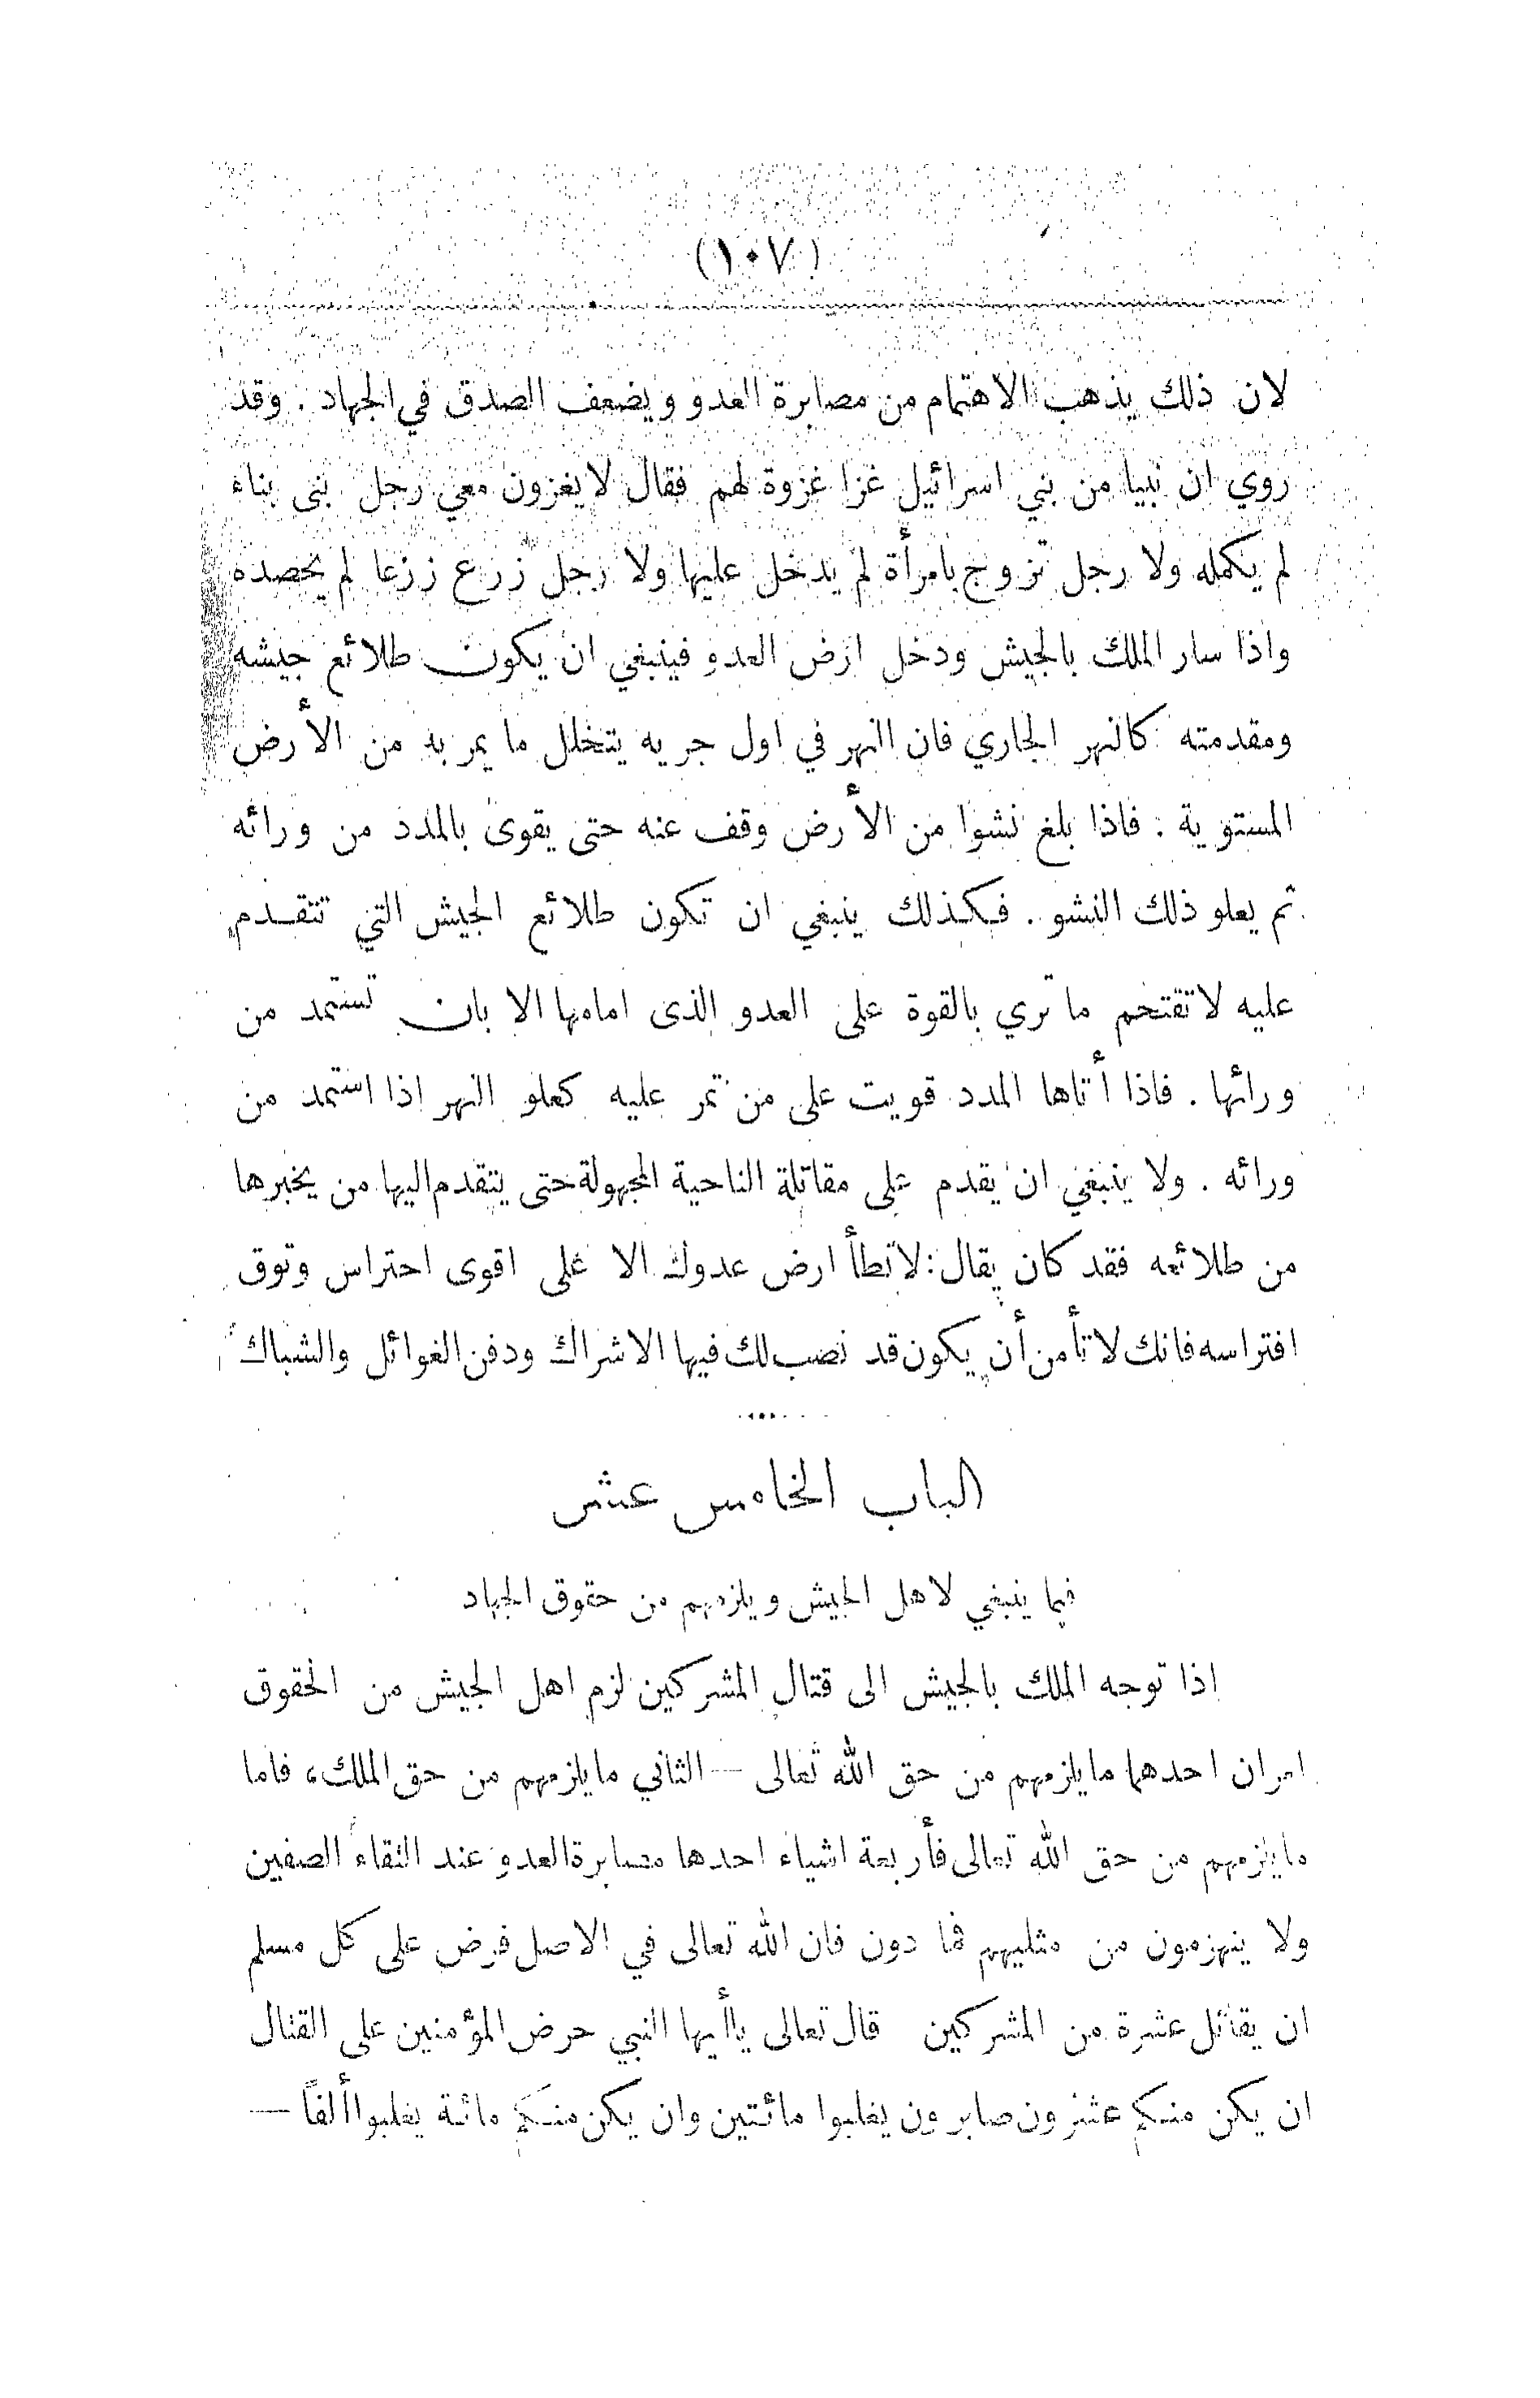 (١٠٧)
لان ذلك يذهب الاهتمام من مصابرة العدو ويضعف الصدق في الجهاد . وقد
روي ان نبيا من بني اسرائيل غزا غزوة لهم فقال لا يغزون معي رجل بنى بناء
لم يكمله ولا رجل تزوج بامرأة لم يدخل عليها ولا رجل زرع زرعا لم يحصده
واذا سار الملك بالجيش ودخل ارض العدو فينبغي ان يكون طلائع جيشه
ومقدمته كالنهر الجاري فان النهر في اول جريه يتخلل ما يمر به من الأرض
المستوية : فاذا بلغ نشوا من الأرض وقف عنه حتى يقوى بالمدد من ورائه
ثم يعلو ذلك النشو . فكذلك ينبغي ان تكون طلائع الجيش التي تتقدم
عليه لا تقتحم ما تري بالقوة على العدو الذى امامها الا بان تستمد من
ورائها . فاذا أتاها المدد قويت على من تمر عليه كعلو النهر اذا استمد من
ورائه . ولا ينبغي ان يقدم على مقاتلة الناحية المجهولة حتى يتقدم اليها من يخبرها
من طلائعه فقد كان يقال : لا تطأ ارض عدوك الا على اقوى احتراس وتوق
افتراسه فانك لا تأمن أن يكون قد نصب لك فيها الاشراك ودفن الغوائل والشباك
الباب الخامس عشر
فيما ينبغي لاهل الجيش ويلزمهم من حقوق الجهاد
اذا توجه الملك بالجيش الى قتال المشركين لزم اهل الجيش من الحقوق
امران احدهما ما يلزمهم من حق الله تعالى — الثاني ما يلزمهم من حق الملك، فاما
ما يلزمهم من حق الله تعالى فأربعة اشياء احدها مصابرة العدو عند التقاء الصفين
ولا ينهزمون من مثليهم فما دون فان الله تعالى في الاصل فرض على كل مسلم
ان يقاتل عشرة من المشركين قال تعالى ياأيها النبي حرض المؤمنين على القتال
ان يكن منكم عشرون صابرون يغلبوا مائتين وان يكن منكم مائة يغلبوا ألفاً —